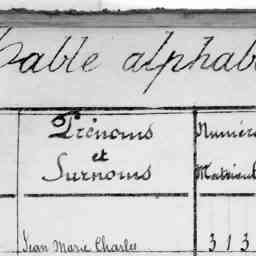 Table alphab
Prénoms
et
Surnoms
Numéro
Matricul
Jean Marie Charles
313